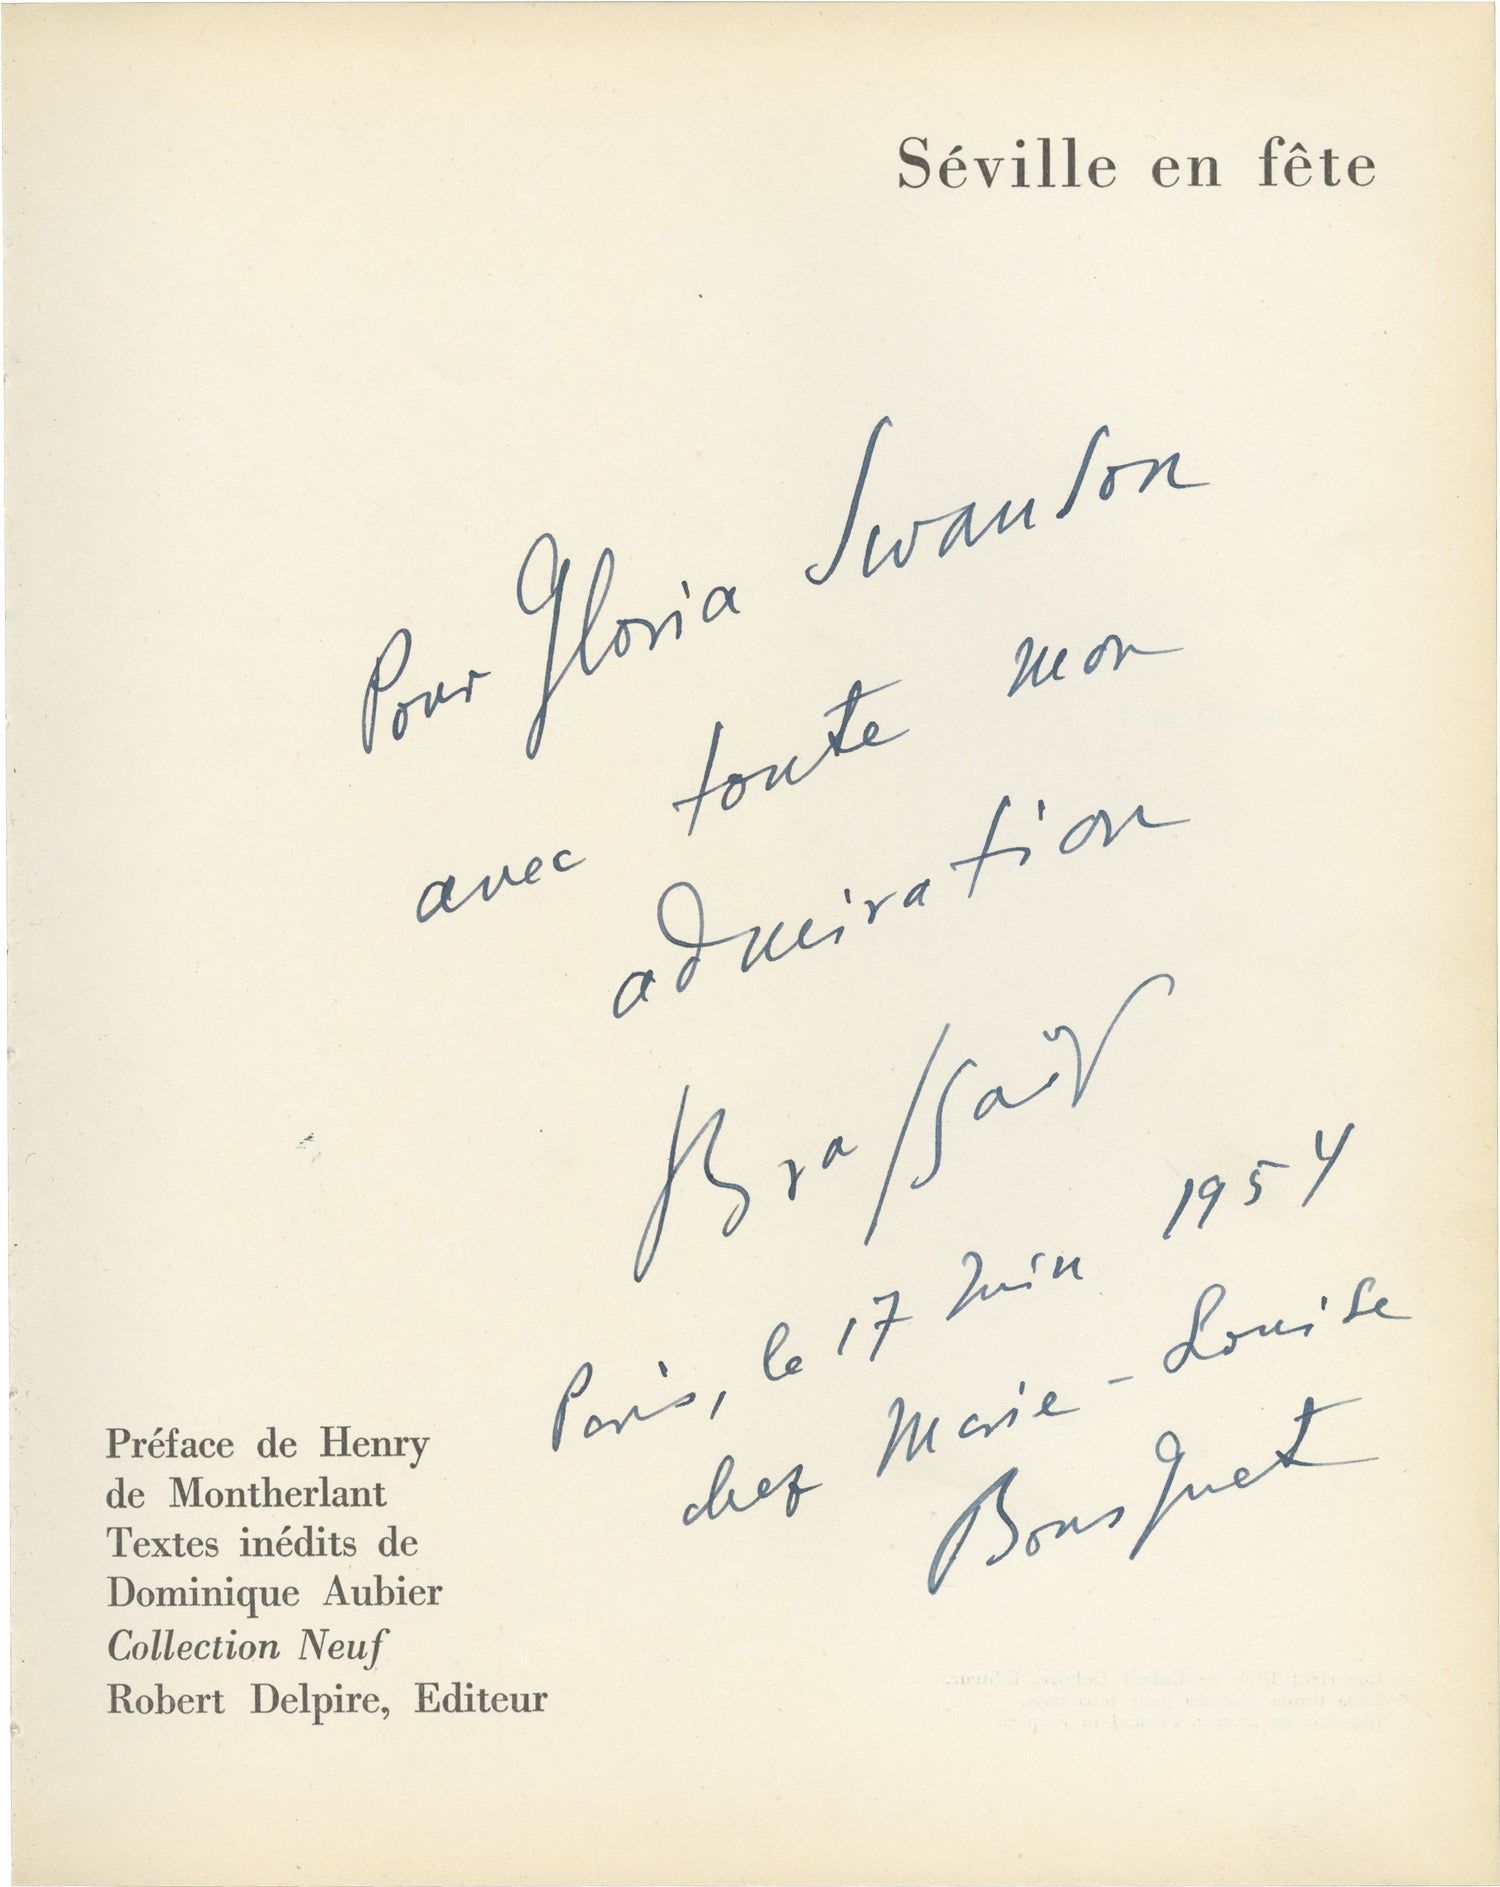 Séville en fête
Pour Gloria Swanson
avec toute mon
admiration
Brassaï
Paris, le 17 Juin 1954
chez Marie-Louise
Bousquet
Préface de Henry
de Montherlant
Textes inédits de
Dominique Aubier
Collection Neuf
Robert Delpire, Editeur